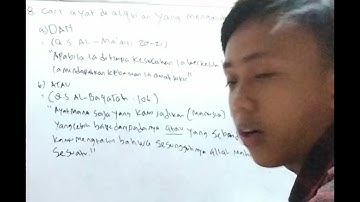 8. Cari ayat di alquran yang mengand
a) DAN
(Q.S AL-Ma'arij 20-21)
"Apabila ia ditimpa kesusahan ia berkeluh
(a mendapatkan kebaikan ia amat kikir"
b) ATAU
(Q.S AL-Baqarah : 106)
"Ayat mana saja yang kami jadikan (manusia)
yang lebih baik daripadanya atau yang seban
kamu mengetahui bahwa sesungguhnya Allah
Sesuatu"